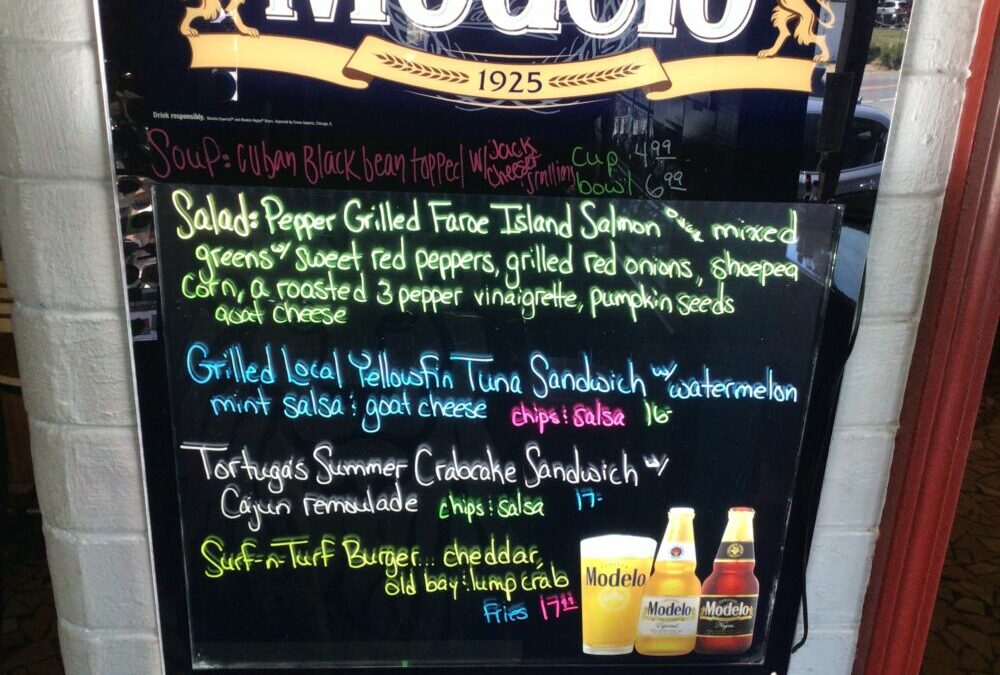 Modelo
1925
Drink responsibly.
Soup: Cuban Black bean topped w/ Jack
cheese
Cup 4.99
bowl 6.99
Salad: Pepper Grilled Faroe Island Salmon over mixed
greens w/ sweet red peppers, grilled red onions, shoepeg
corn, a roasted 3 pepper vinaigrette, pumpkin seeds
goat cheese
Grilled Local Yellowfin Tuna Sandwich w/ watermelon
mint salsa & goat cheese chips & salsa 16-
Tortuga's Summer Crabcake Sandwich w/
Cajun remoulade chips & salsa 17-
Surf-n-Turf Burger... cheddar,
old bay & lump crab
Fries 17.99
Modelo
Modelo
Especial
Modelo
Negra